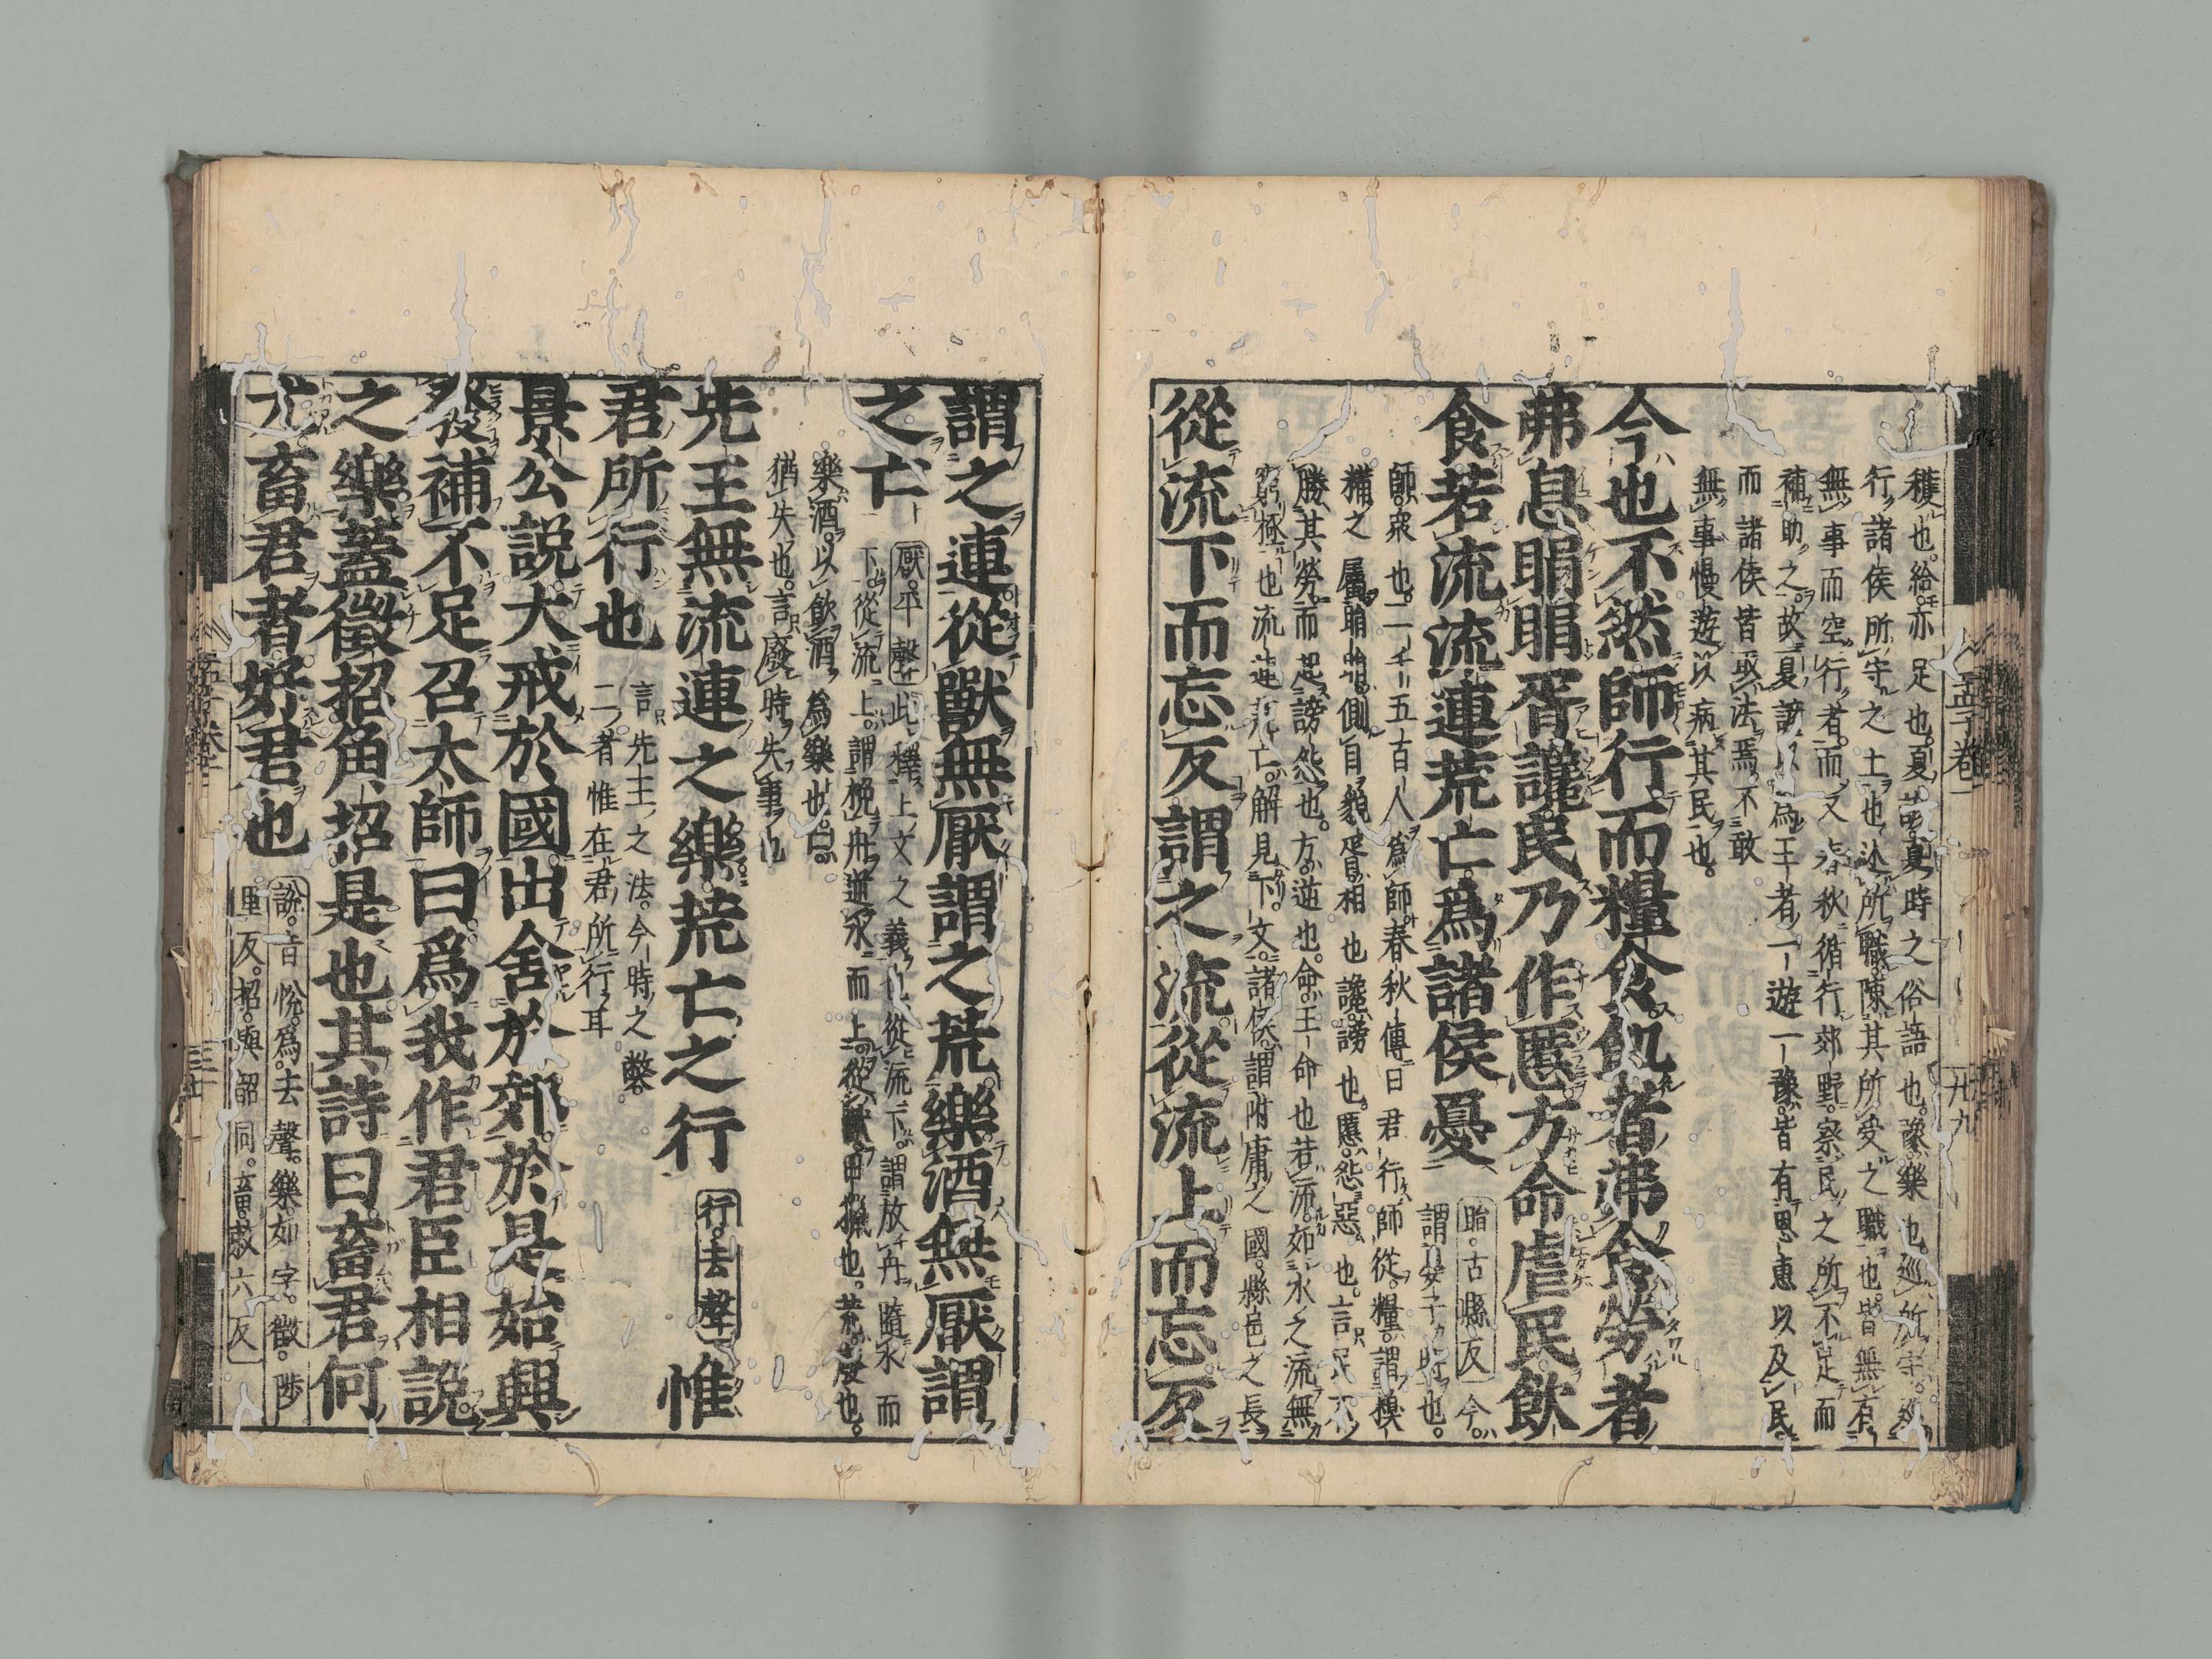 穫也。給亦足也。夏諺夏時之俗語也。豫樂也。巡所守。巡
行諸侯所守之土也。述所職陳其所受之職也。皆無有
無事而空行者。而又春秋循行郊野。察民之所不足而
補助之。故夏諺以爲王者一遊一豫。皆有恩惠以及民
而諸侯皆取法焉。不敢
無事慢遊以病其民也。
今也不然師行而糧食飢者弗食勞者
弗息睊睊胥讒民乃作慝方命虐民飲
食若流流連荒亡爲諸侯憂
睊。古縣反 今
謂晏子時也。
師。衆也。二千五百人爲師春秋傳曰君行師從。糧。謂糗
糒之屬。睊睊。側目貌。胥。相也讒。謗也。慝。怨惡也。言民不
勝其勞。而起謗怨也。方。逆也。命。王命也若流。如水之流無
窮極也流連荒亡。解見下文。諸侯。謂附庸之國。縣邑之長
從流下而忘反謂之流從流上而忘反
謂之連從獸無厭謂之荒樂酒無厭謂
之亡
厭。平聲 此釋上文之義也從流下。謂放舟隨水而
下。從流上。謂挽舟逆水而上。從獸。田獵也。荒。廢也。
樂酒。以飲酒爲樂也。亡。
猶失也。言廢時失事也
先王無流連之樂荒亡之行
行。去聲
惟
君所行也
言先王之法。今時之弊。
二者惟在君所行耳
景公說大戒於國出舍於郊於是始興
發補不足召太師曰爲我作君臣相說
之樂蓋徵招角招是也其詩曰畜君何
尤畜君者好君也
說。音悅。爲。去聲。樂如字。徵。陟
里反。招。與韶同。畜。敕六反
孟子卷一
廿九